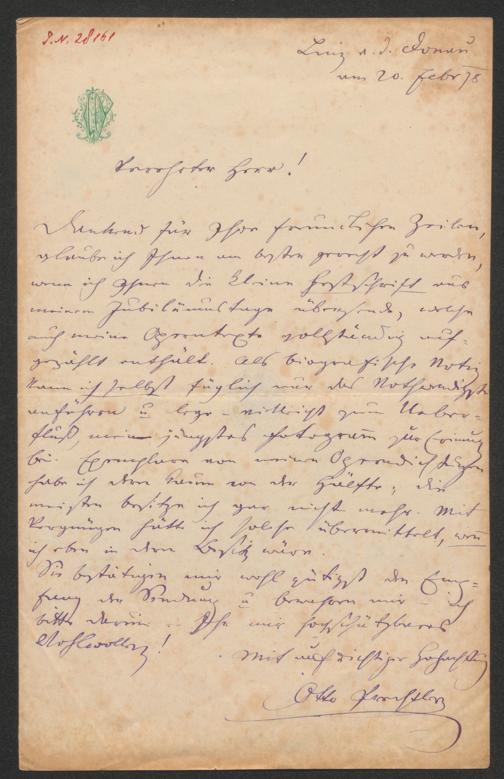 I.N. 28161
Linz a. d. Donau
am 20. Febr 78
Verehrter Herr!
Dankend für Ihre freundlichen Zeilen,
glaube ich Ihnen am besten gerecht zu werden,
wenn ich Ihnen die kleine Festschrift aus
meinem Jubiläumstage übersende, welche
auch meine Operntexte vollständig auf-
gezählt enthält. Als biografische Notiz
kann ich selbst füglich nur das Nothwendigste
anführen u lege vielleicht zum Ueber-
fluß mein jüngstes Fotogramm zur Erinnrg
bei. Exemplare von meinen Operndichtungen
habe ich denn kaum von der Hälfte; die
meisten besitze ich gar nicht mehr. Mit
Vergnügen hätte ich solche übermittelt, wenn
ich eben in deren Besitz wäre.
Sie bestätigen mir wohl gütigst den Em-
pfang der Sendung u bewahren mir – ich
bitte darum – Ihr mir hochschätzbares
Wohlwollen!
Mit aufrichtiger Hochachtung
Otto Prechtler